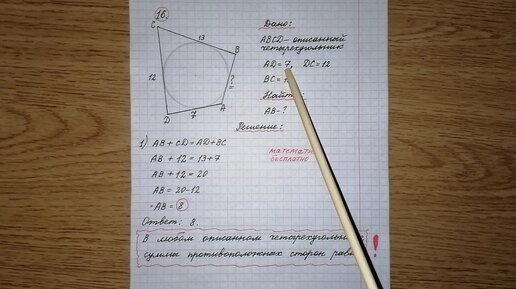 16.
C
13
B
12
?
D
7
A
Дано:
ABCD – описанный
четырехугольник
AD = 7, DC = 12
BC = 1
Найт
AB - ?
Решение:
1) AB + CD = AD + BC
AB + 12 = 13 + 7
AB + 12 = 20
AB = 20 - 12
AB = 8
математи
бесплатно
Ответ: 8.
В любом описанном четырехугольн
суммы противоположных сторон рав
!